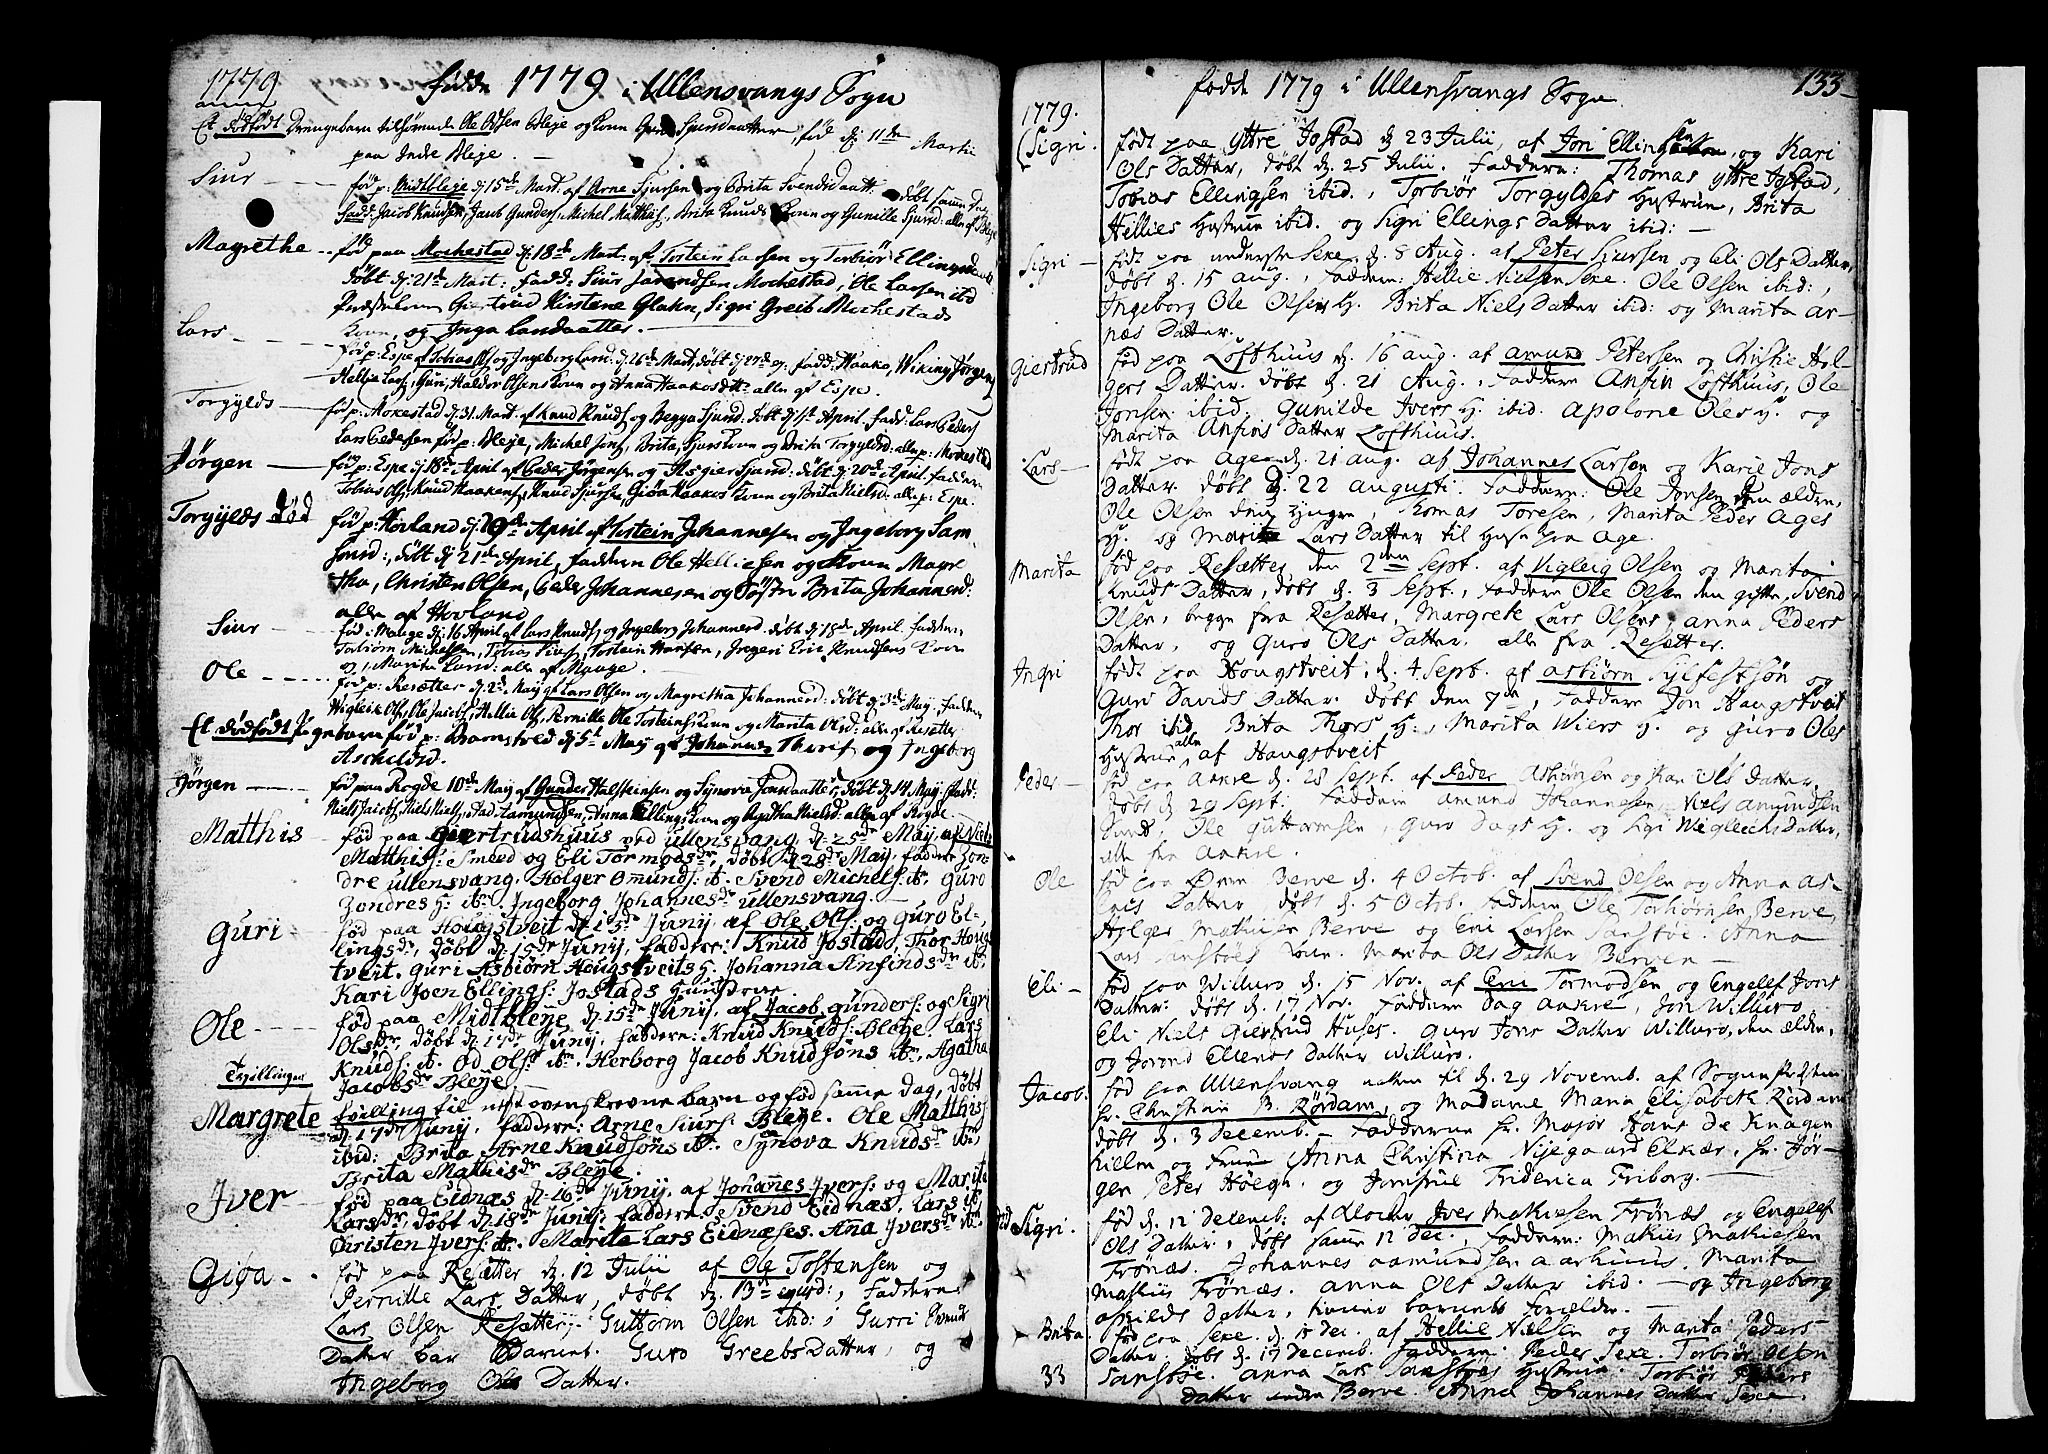 1779
fødde 1779 i Ullensvangs Sogn
Et dødfødt Drengebarn tilhørende Ole Olsen Bleje og Kone Guro Sjursdaatter, fød d: 11de Martii
paa Indre Bleje.
Siur
fød p: Midtbleje d: 15de Mart. af Arne Sjursen og Brita Svendsdaatt. døbt samme Dag
Fadd: Jacob Knudsen, Jacob Gunders, Michel Matthis, Brita Knuds Kone og Gunille Sjursd: alle af Bleje
Magrethe
fød paa Mochestad d: 18de Mart. af Tostein Larsen og Torbiør Ellingsdaatt
døbt d: 21de Mart: Fadd: Siur Mochestad, Ole Larsen ibd
Giertrud Kirstene Glahn, Sigri Greib Mochestads
Kone, og Inga Larsdaatter.
Lars
fød p: Espe af Tobias Ols og Ingeborg Larsd: d: 26de Mart. døbt d: 27de ej. fadd: Haako, Wiking Jørgens
Hellie Lars, Guri, Haldor Olsens Kone og Anna Haakosdtr alle af Espe.
Torgylds
fød p: Mokestad d: 31 Mart. af Knud Knuds og Begga Sjursd: døbt d: 1st April. fadd: Lars Peders
Lars Pedersen fød p: Bleje, Michel Jons, Brita, Sjurs Kone og Brita Torgyldsd: alle p: Mokestad
Jørgen
fød p: Espe d: 18de April af Peder Jørgensen og Asgier Sjursd: døbt d: 20de April. faddere
Tobias Ols, Knud Haakons, Knud Sjursen, Giøa Haakos Kone og Brita Nielsd. alle p: Espe.
Torgylds død
fød p: Hovland d: 19de April af Tostein Johannesen og Ingeborg Sam-
sonsd: døbt d: 21de April, faddere Ole Helliesen og Kone Magre
tha, Christen Olsen, Peder Johannesen og Søster Brita Johannesd:
alle af Hovland
Siur
fød i Mauge d: 16 April af Lars Knuds og Ingeborg Johannesd. døbt d: 18de April. faddere,
Torbiørn Michelsen, Tobias Siurs, Tostein Hansen, Ingeri Eric Knudsens Kone
og Marita Larsd: alle af Mauge.
Ole
fød p: Resætter d: 2de Maij af Lars Olsen og Magretha Johannesd: døbt d: 3de Maij. Faddere
Wigleik Ols, Ole Jacobs, Hellie Ols, Pernille Ole Tosteins Kone og Marita Olsd: alle af Resetter
Et dødfødt Pigebarn fød p: d: 5t Maij af Johannes og Ingeborg
Ascheldsd.
Jørgen
fød paa Rogde 10de Maij af Gunder Halsteinsen og Synova Jonsdaatter, døbt d: 14 Maij: Fadd:
Niels Jacobs, Niels Niels, Aamundsen, Anna Ellings Kone og Agatha Nielsd: alle af Rogde
Matthis
fød paa giertrudshuus ved ullensvang, d: 25de Maij af Niels
Matthiss: Smed og Eli Tormodsdr, døbt d: 28de Maij, faddere Zon-
dre ullensvang. Holger Omunds: ib. Svend Michels: ib. Guro
Zondres H: ib. Ingeborg Johannesdr ullensvang.
Guri
fød paa Hougstveit d: 13de Junij, af Ole Ols: og Guro El-
lingsdr, døbt d: 15de Junij, faddere: Knud Jostads, Thor Houg
tveit. Guri Asbiørn Hougstveits H. Johanna Anfindsdr ib.
Kari Joen Ellings: Jostads hustrue
Ole
fød paa Midtbleye d: 15de Junij, af Jacob gunders: og Sigri
Olsdr, døbt d: 17de Junij, faddere: Knud Knuds: Bleye. Lars
Knuds: ib. Od Ols: ib. Herborg Jacob Knudsøns ib. Agatha
Jacobsdr Bleye
Tvillinger
Margrete
tvilling til næst ovenskrevne barn og fød samme Dag, døbt
d: 17de Junij. faddere: Arne Siurs: Bleye. Ole Matthiss
ibid: Brita Arne Knudsøns ib. Synova Knudsdr ib.
Brita Mathisdr Bleye
Jver
fød paa Eidnæs d: 16de Junij. af Johannes Jvers: og Marita
Larsdr, døbt d: 18de Junij, faddere: Svend Eidnæs. Lars ib.
Christen Jvers: ib. Marite Lars Eidnæses. Ana Jversdr ib.
Giøa
fød paa Resætter d. 12 Julii af Ole Tostensen og
Pernille Lars Datter, døbt d. 13de ejusd:, Faddere
Lars Olsen Resætter, Guttorm Olsen ibd:, Gurri Knuds
Datter bar Barnet. Guro Greebs Datter, og
Ingeborg Ols Datter.
133
fødde 1779 i Ullensvangs Sogn.
1779.
Sigri.
født paa Yttre Jostad d. 23 Julii, af Jon Ellingsen, og Kari
Ols Datter, døbt d. 25 Julii. Faddere: Thomas Yttre Jostad,
Tobias Ellingsen ibid., Torbiør Torgyldses Hustrue, Brita
Hellies Hustrue ibid. og Sigri Ellings Datter ibid:
Sigri
født paa underste Sexe d. 8 Aug. af Peter Siursen og Eli Ols Datter,
døbt d. 15 aug., Faddere: Hellie Nielsen Sexe. Ole Olsen ibid:,
Ingeborg Ole Olsens H. Brita Niels Datter ibid: og Marita Ar-
næs Datter.
Giertrud
fød paa Lofthuus d. 16 aug. af Amund Petersen og Christie Hol-
gers Datter. døbt d. 21 Aug., Faddere Anfin Lofthuus, Ole
Jonsen ibid. Gunilde Jvers H. ibid. Apolone Oles H. og
Marita Anfins Datter Lofthuus.
Lars
født paa Age d. 21 aug. af Johannes Larsen og Karie Jons
Datter. døbt d. 22 augusti. Faddere: Ole Jonsen den ældre,
Ole Olsen den yngre, Thomas Toresen, Marita Peder Ages
H. og Marita Lars Datter til Huse paa Age.
Marita
fød paa Resætter den 2den Sept. af Vigleig Olsen og Marita
Knuds Datter, døbt d. 3 Sept., Faddere Ole Olsen den gifte, Svend
Olsen, begge fra Resætter, Margrete Lars Olsens, Anna Peders
Datter, og Guro Ols Datter. alle fra Resætter.
Ingri
født paa Hougstveit, d. 4 Sept. af Asbiørn Sylfestsøn og
Guro Davids Datter. døbt den 7de, Faddere Jon Haugstveit
Thor ibid. Brita Thors H., Marita Wiers H. og Guro Oles
Hustrue, alle af Haugstveit
Peder
fød paa Aakre d. 28 Sept. af Peder Asbiørnsen og Kari Ols Datter,
døbt d. 29 Sept: Faddere Amund Johannesen, Niels Amundsen
Ole Guttormsen, Guro Dags H. og Sigri Wigleichs Datter,
alle fra Aakre.
Ole
fød paa Øvre Berve d. 4 Octob. af Svend Olsen og Anna As-
Datter, døbt d. 5 Octob. Faddere Ole Torbiørnsen Berve,
Holger Mathisen Berve og Eric Larsen Sanstøe. Anna
Lars Sanstøes Kone. Marita Ols Datter Berven
Eli
fød paa Willuro d. 15 Nov. af Eric Tormodsen, og Engelef Jons
Datter: døbt d. 17 Nov. Faddere Dag Aakre, Jon Willuro,
Eli Niels Giertrud Huses. Guro Jons Datter Willuro, den ældre,
og Jorand Ellends Datter Willuro.
Jacob.
fød paa Ullensvang natten til d. 29 Novemb. af Sogne Præsten
hr. Christian B. Rørdam, og Madame Maria Elisabeth Rørdam
døbt d. 3 Decemb. Fadderne hr. Major Hans de Knagen
hielm og Frue Anna Christina Nijegaard Elkær, hr. Jør-
gen Peter Høegh. og Jomfrue Friderica Friborg.
Sigri.
fød d. 12 Decemb: af Klocker Jver Mathiesen Trønæs, og Engelef
Ols Datter, døbt samme 12 Dec., Faddere: Mathis Mathiesen
Trønæs. Johannes Aamundsen Aarhuus. Marita
Mathiis Trønæs. Anna Ols Datter ibid. og Ingeborg
Aschilds Datter, tiener barnets Forældre.
Brita
fød paa Sexe d. 15 Dec. af Hellie Nielsen og Marita Peders
Datter. døbt d. 17 Decemb. Faddere: Peder Sexe. Torbiør Olsen
Sanstøe. Anna Lars Sanstøes Hustrue. Torbiør Peders
Datter indre Berve. Anna Johannes Datter Sexe.
33